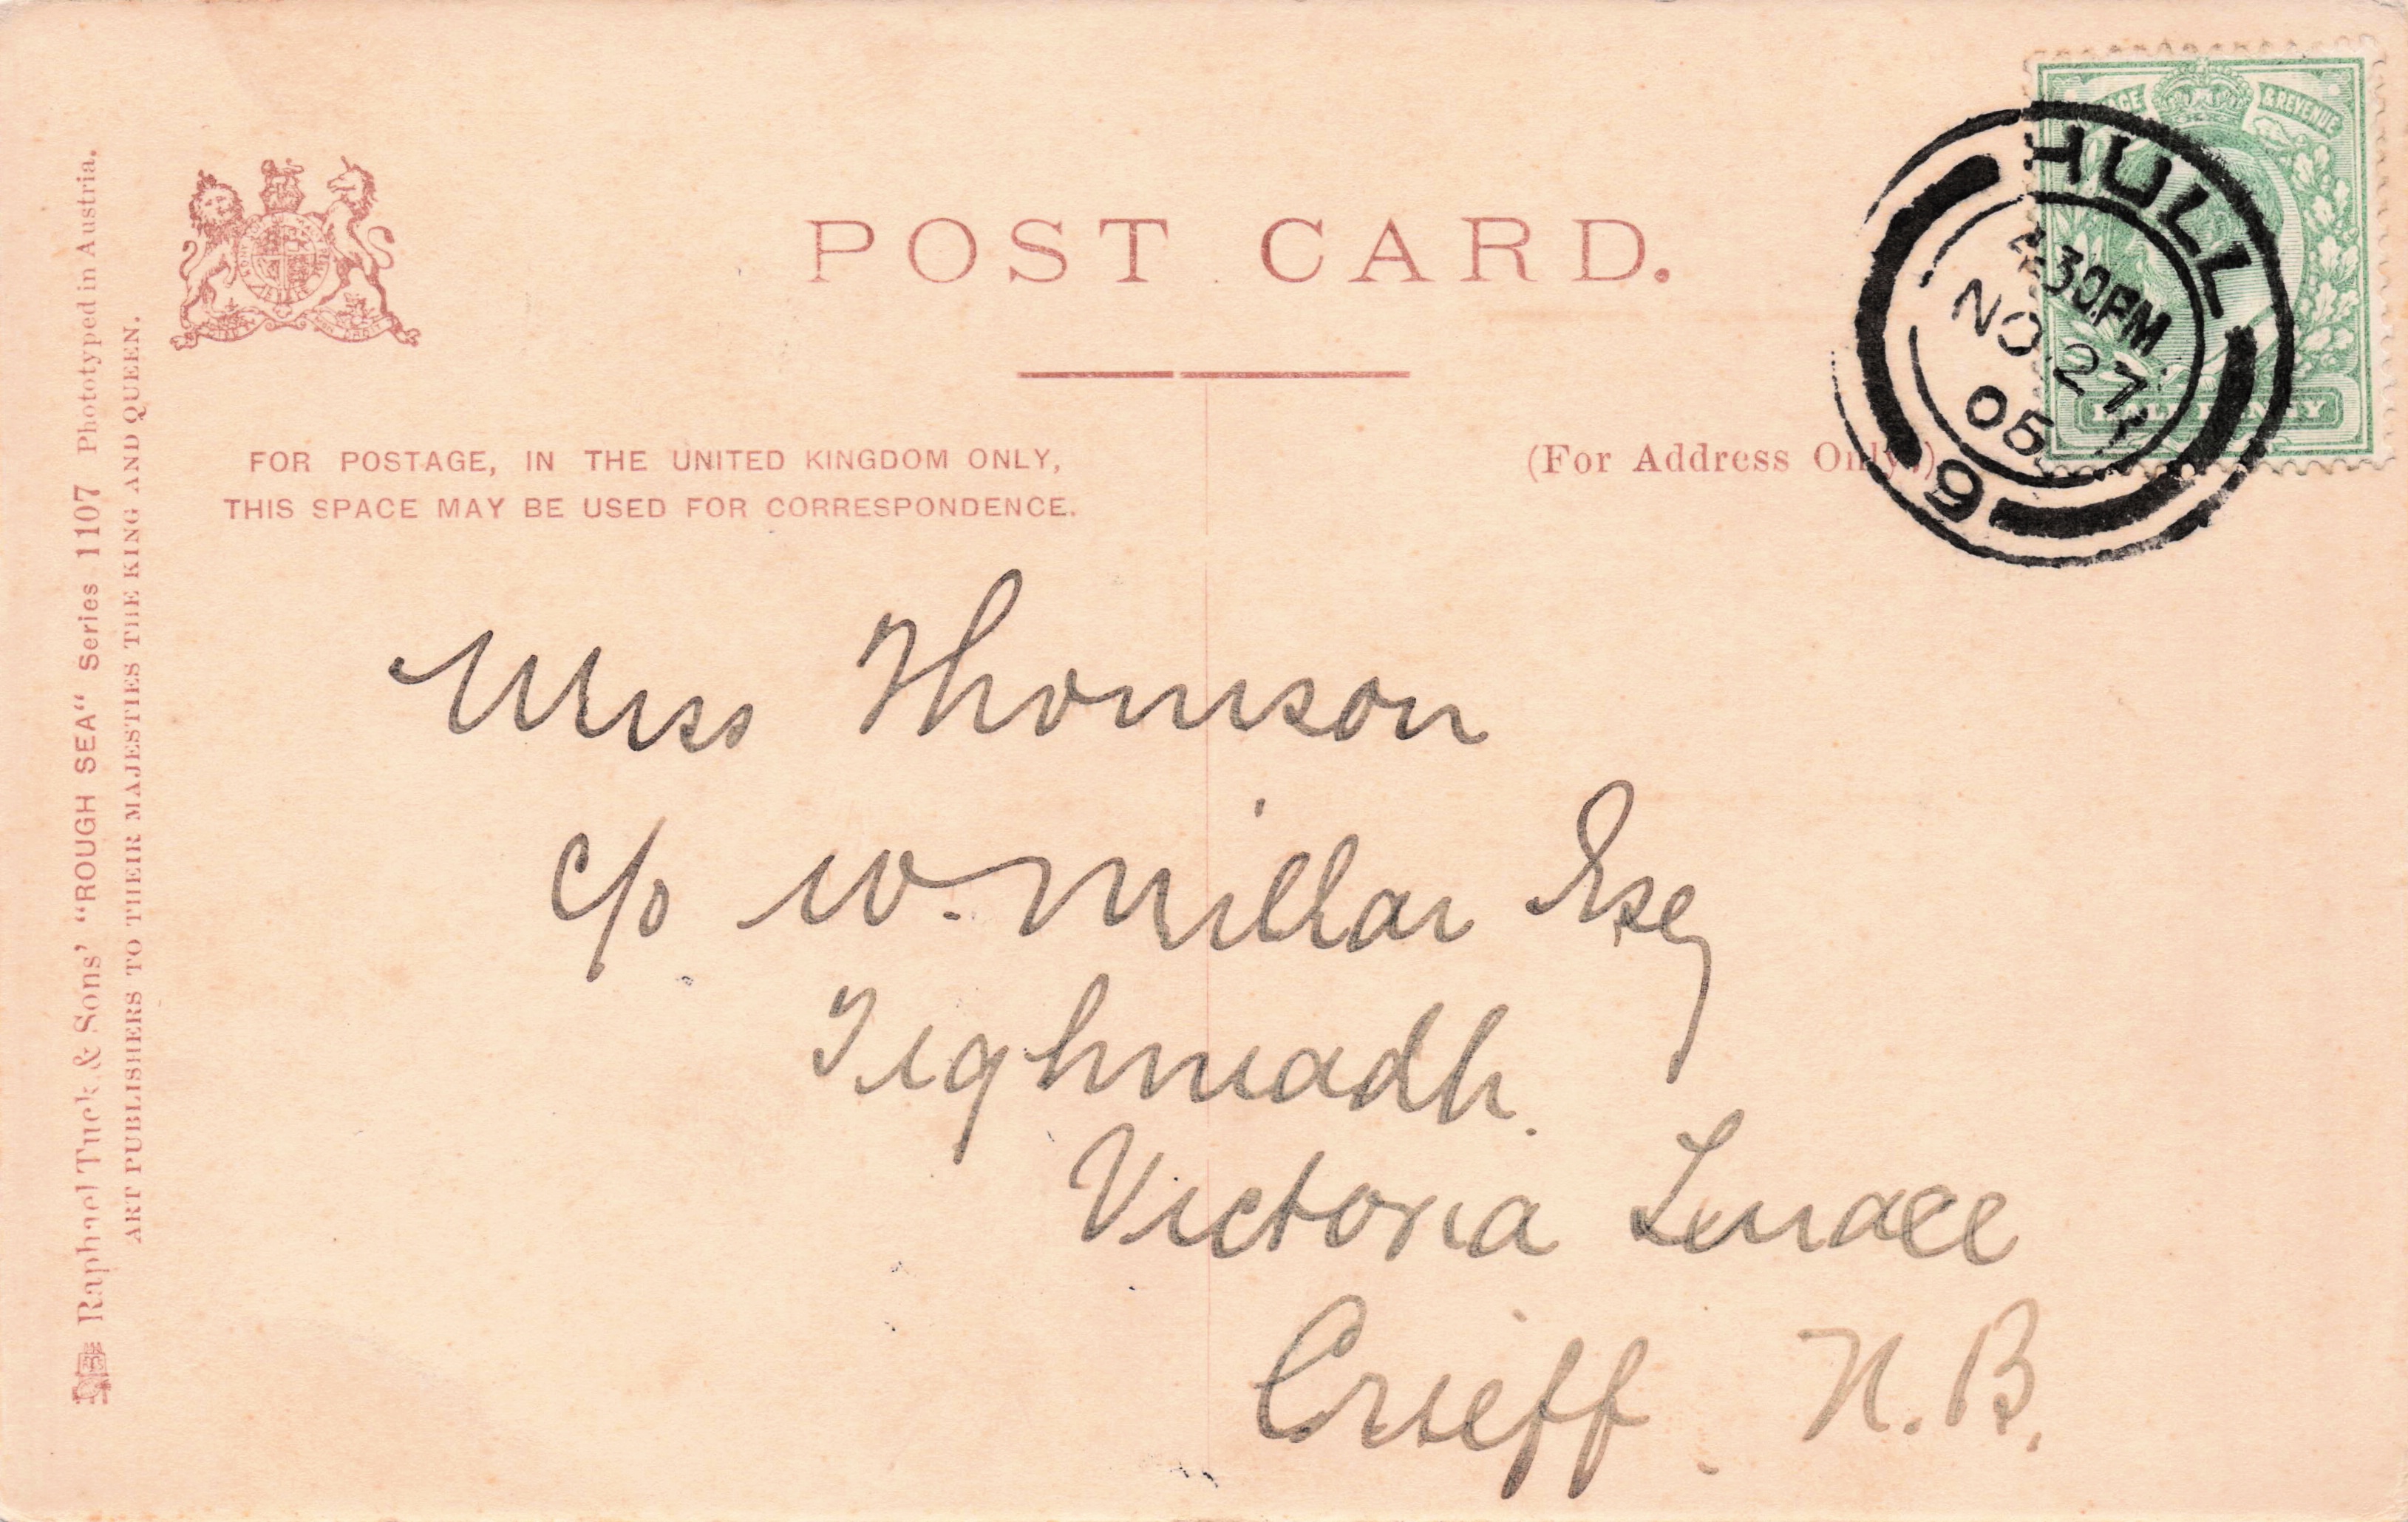 POST CARD.
FOR POSTAGE, IN THE UNITED KINGDOM ONLY,
THIS SPACE MAY BE USED FOR CORRESPONDENCE.
(For Address Only.)
& REVENUE
HALFPENNY
HULL
30PM
NO 27
05
9
Miss Thomson
c/o W. Millar Esq
Tighmadh.
Victoria Terrace
Crieff. N.B.
Raphael Tuck & Sons' "ROUGH SEA" Series 1107 Phototyped in Austria.
ART PUBLISHERS TO THEIR MAJESTIES THE KING AND QUEEN.